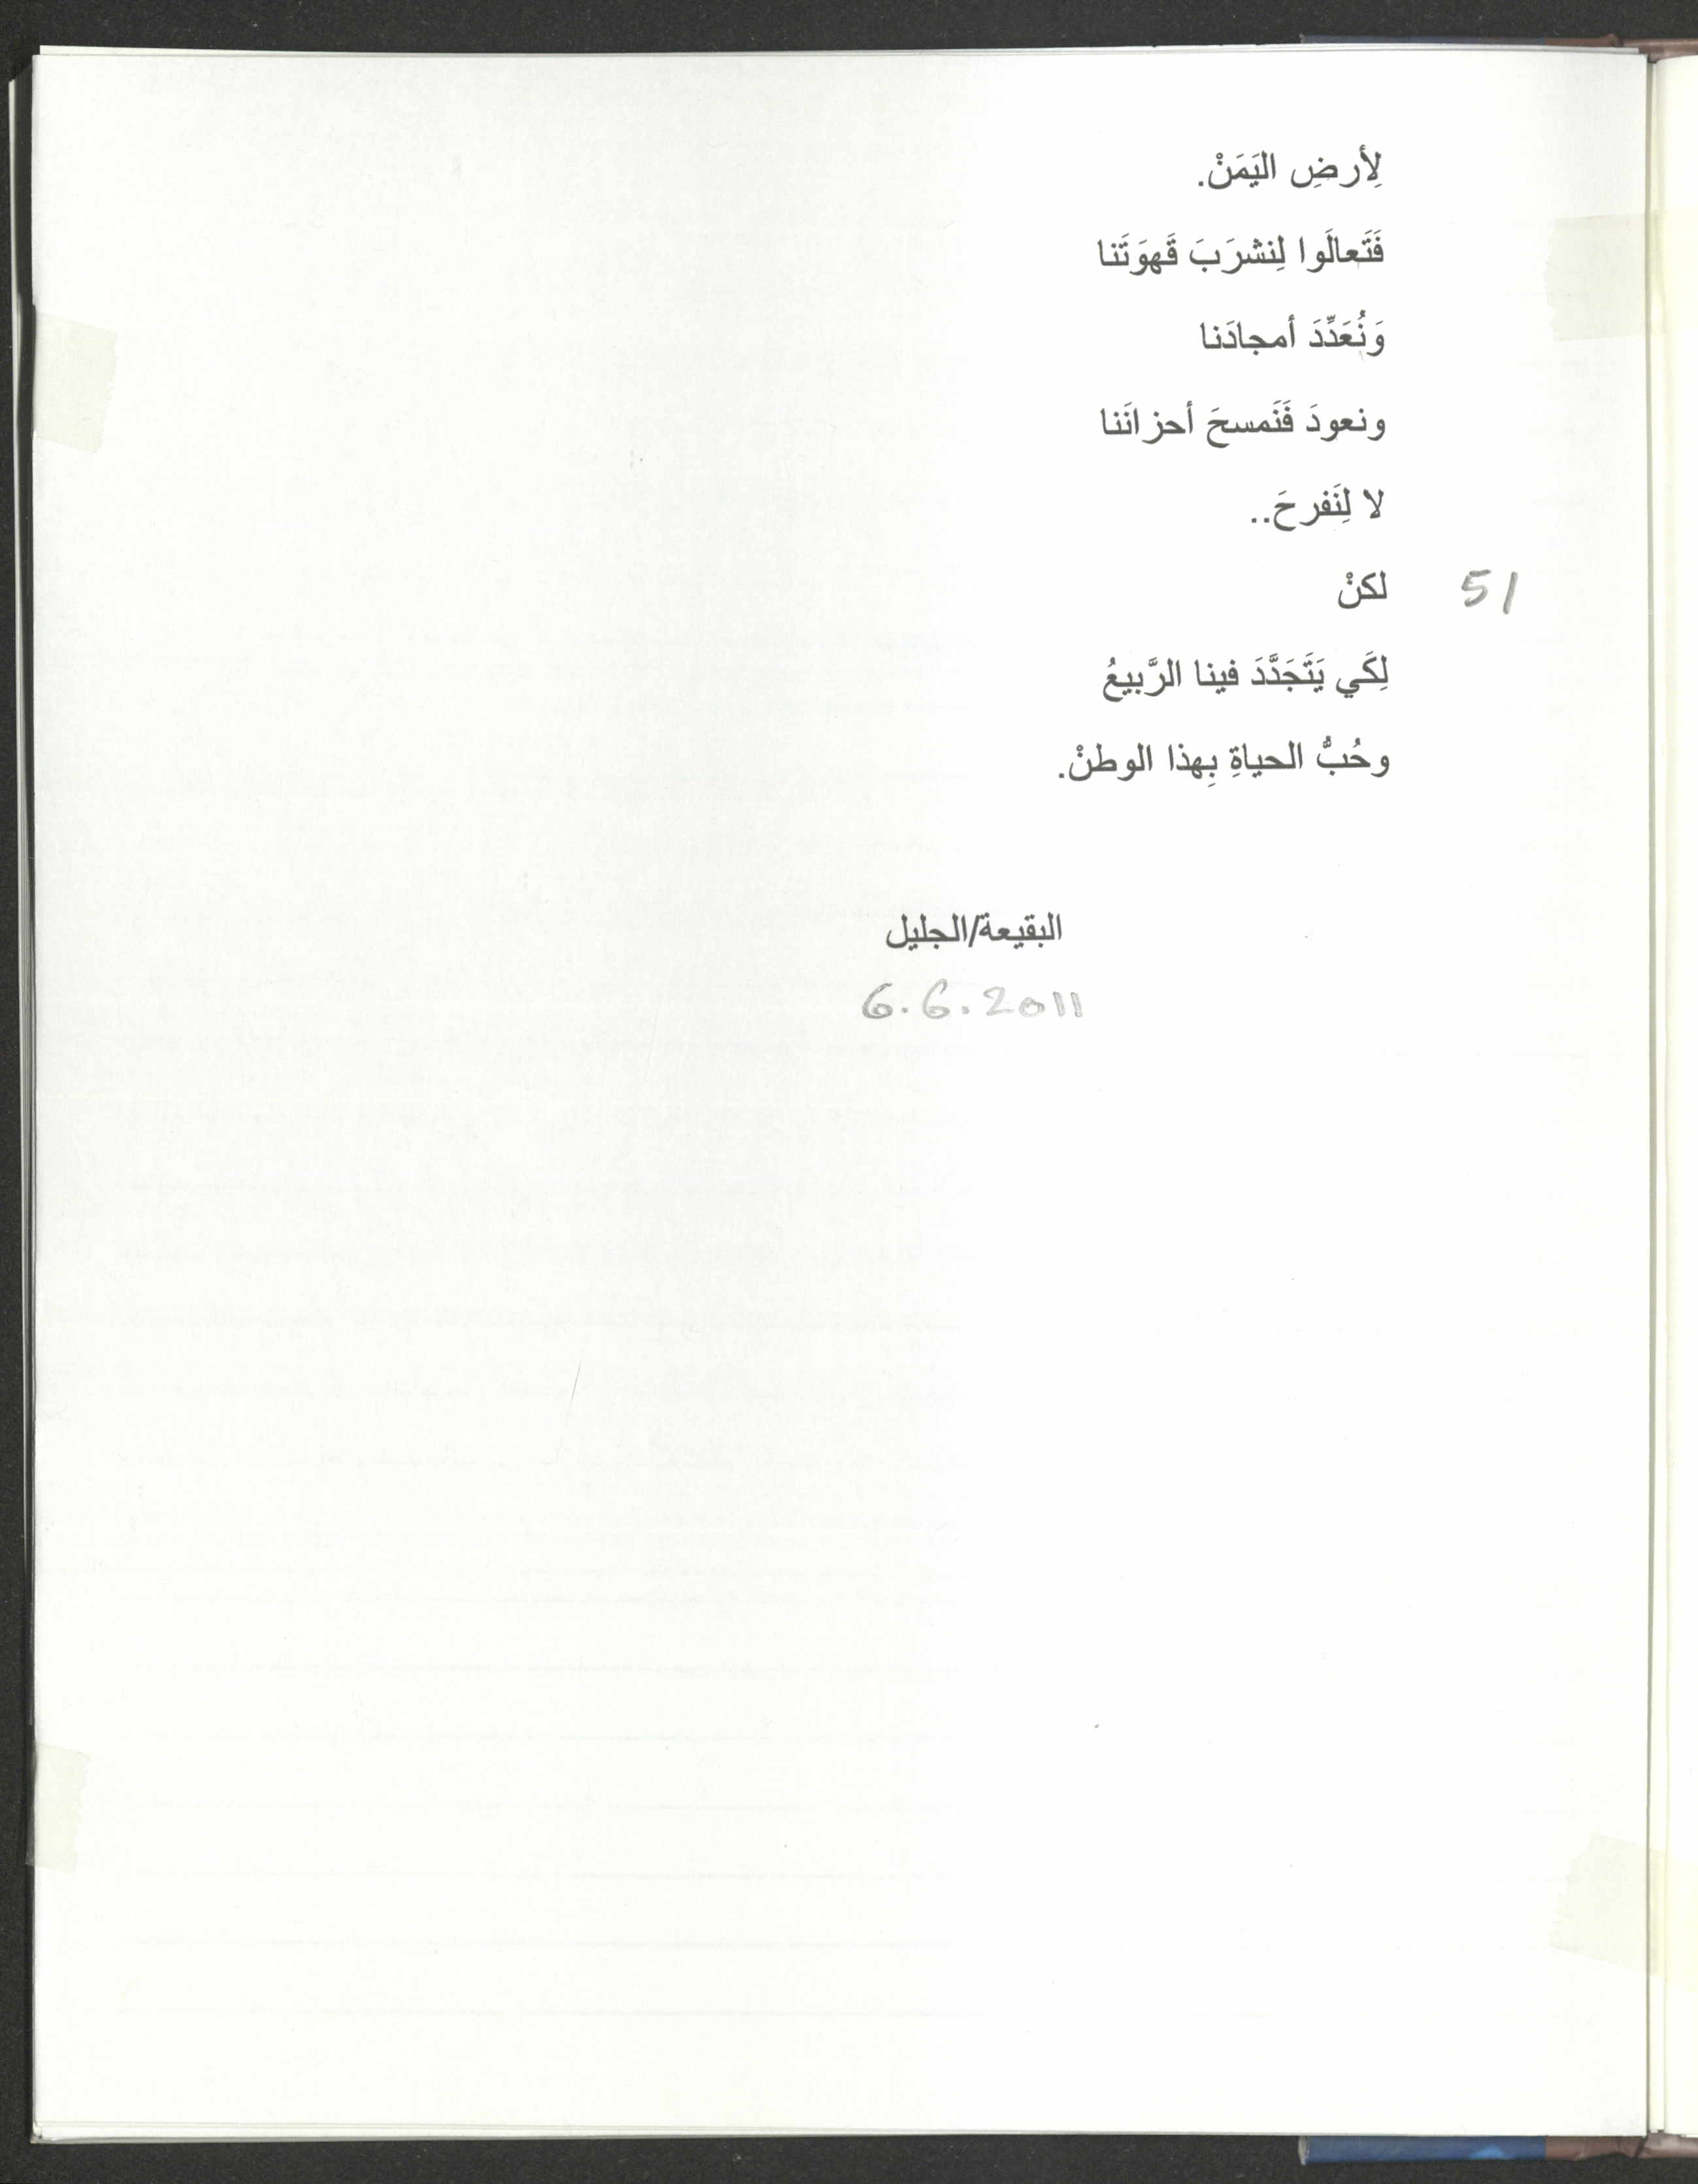 لِأرضِ اليَمَنْ.
فَتَعالَوا لِنشرَبَ قَهوَتَنا
وَنُعَدِّدَ أمجادَنا
ونعودَ فَنَمسحَ أحزانَنا
لا لِنَفرحَ..
لكنْ 51
لِكَي يَتَجَدَّدَ فينا الرَّبيعُ
وحُبُّ الحياةِ بِهذا الوطنْ.
البقيعة/الجليل
6.6.2011